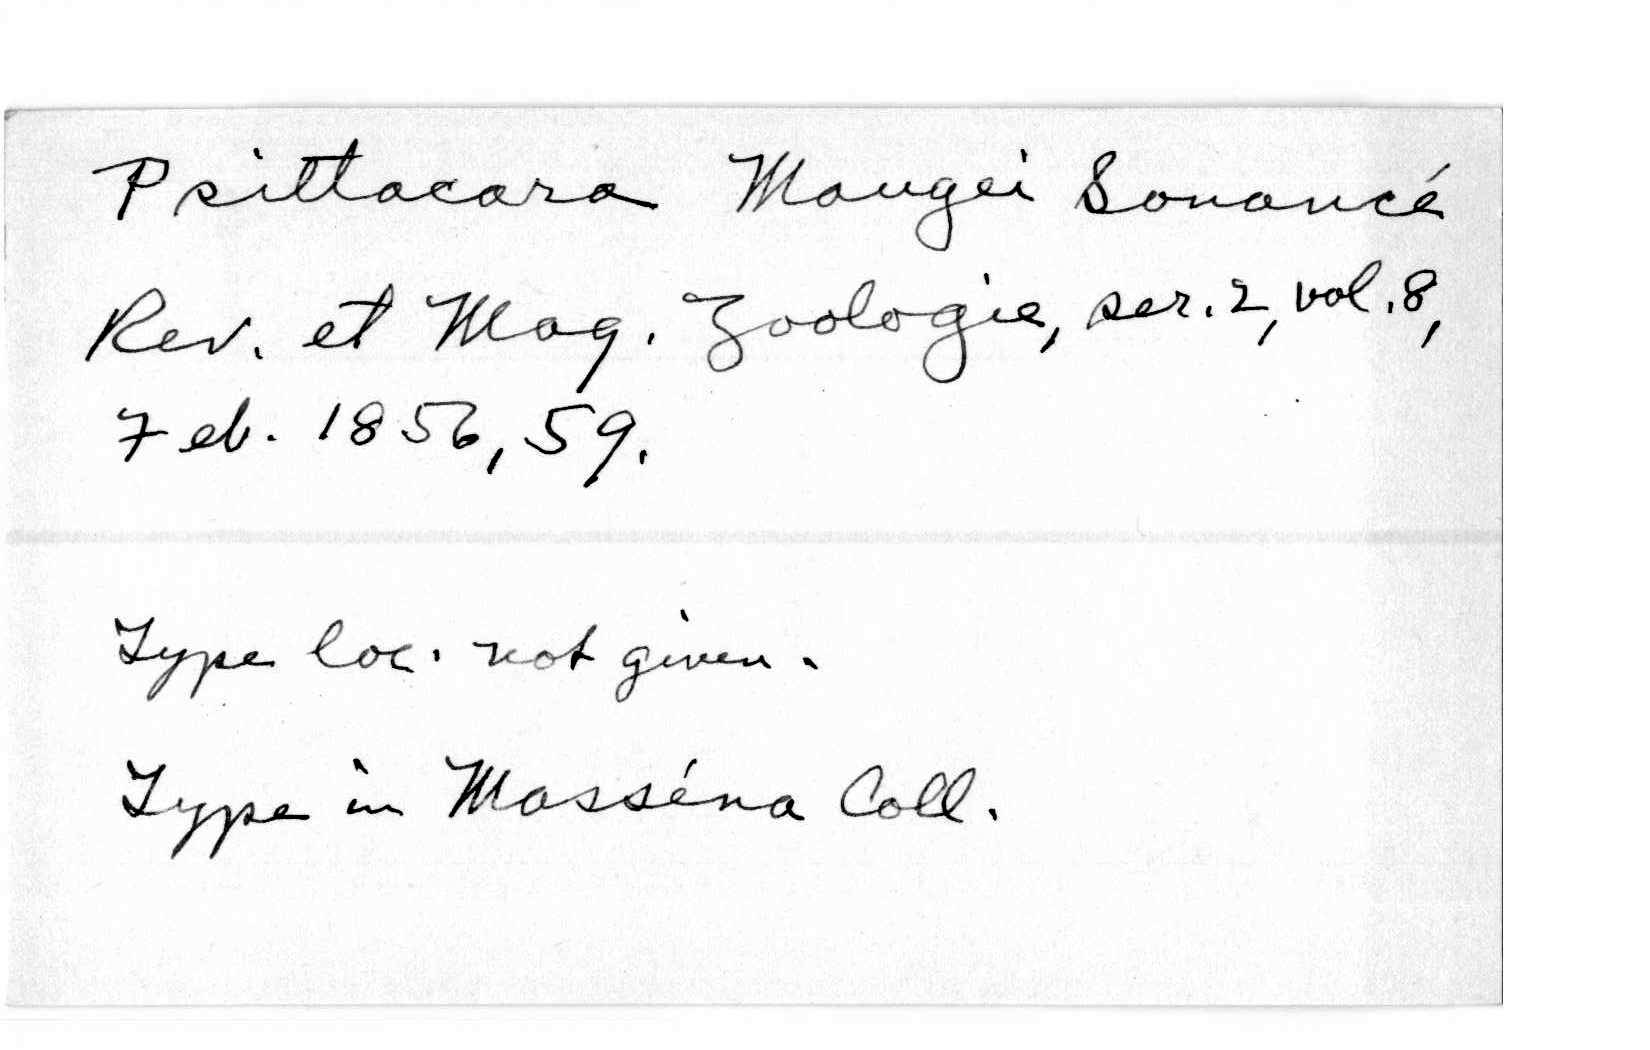 Psittacara Maugei Souancé
Rev. et Mag. Zoologie, ser. 2, vol. 8,
Feb. 1856, 59.
Type loc. not given.
Type in Masséna Coll.